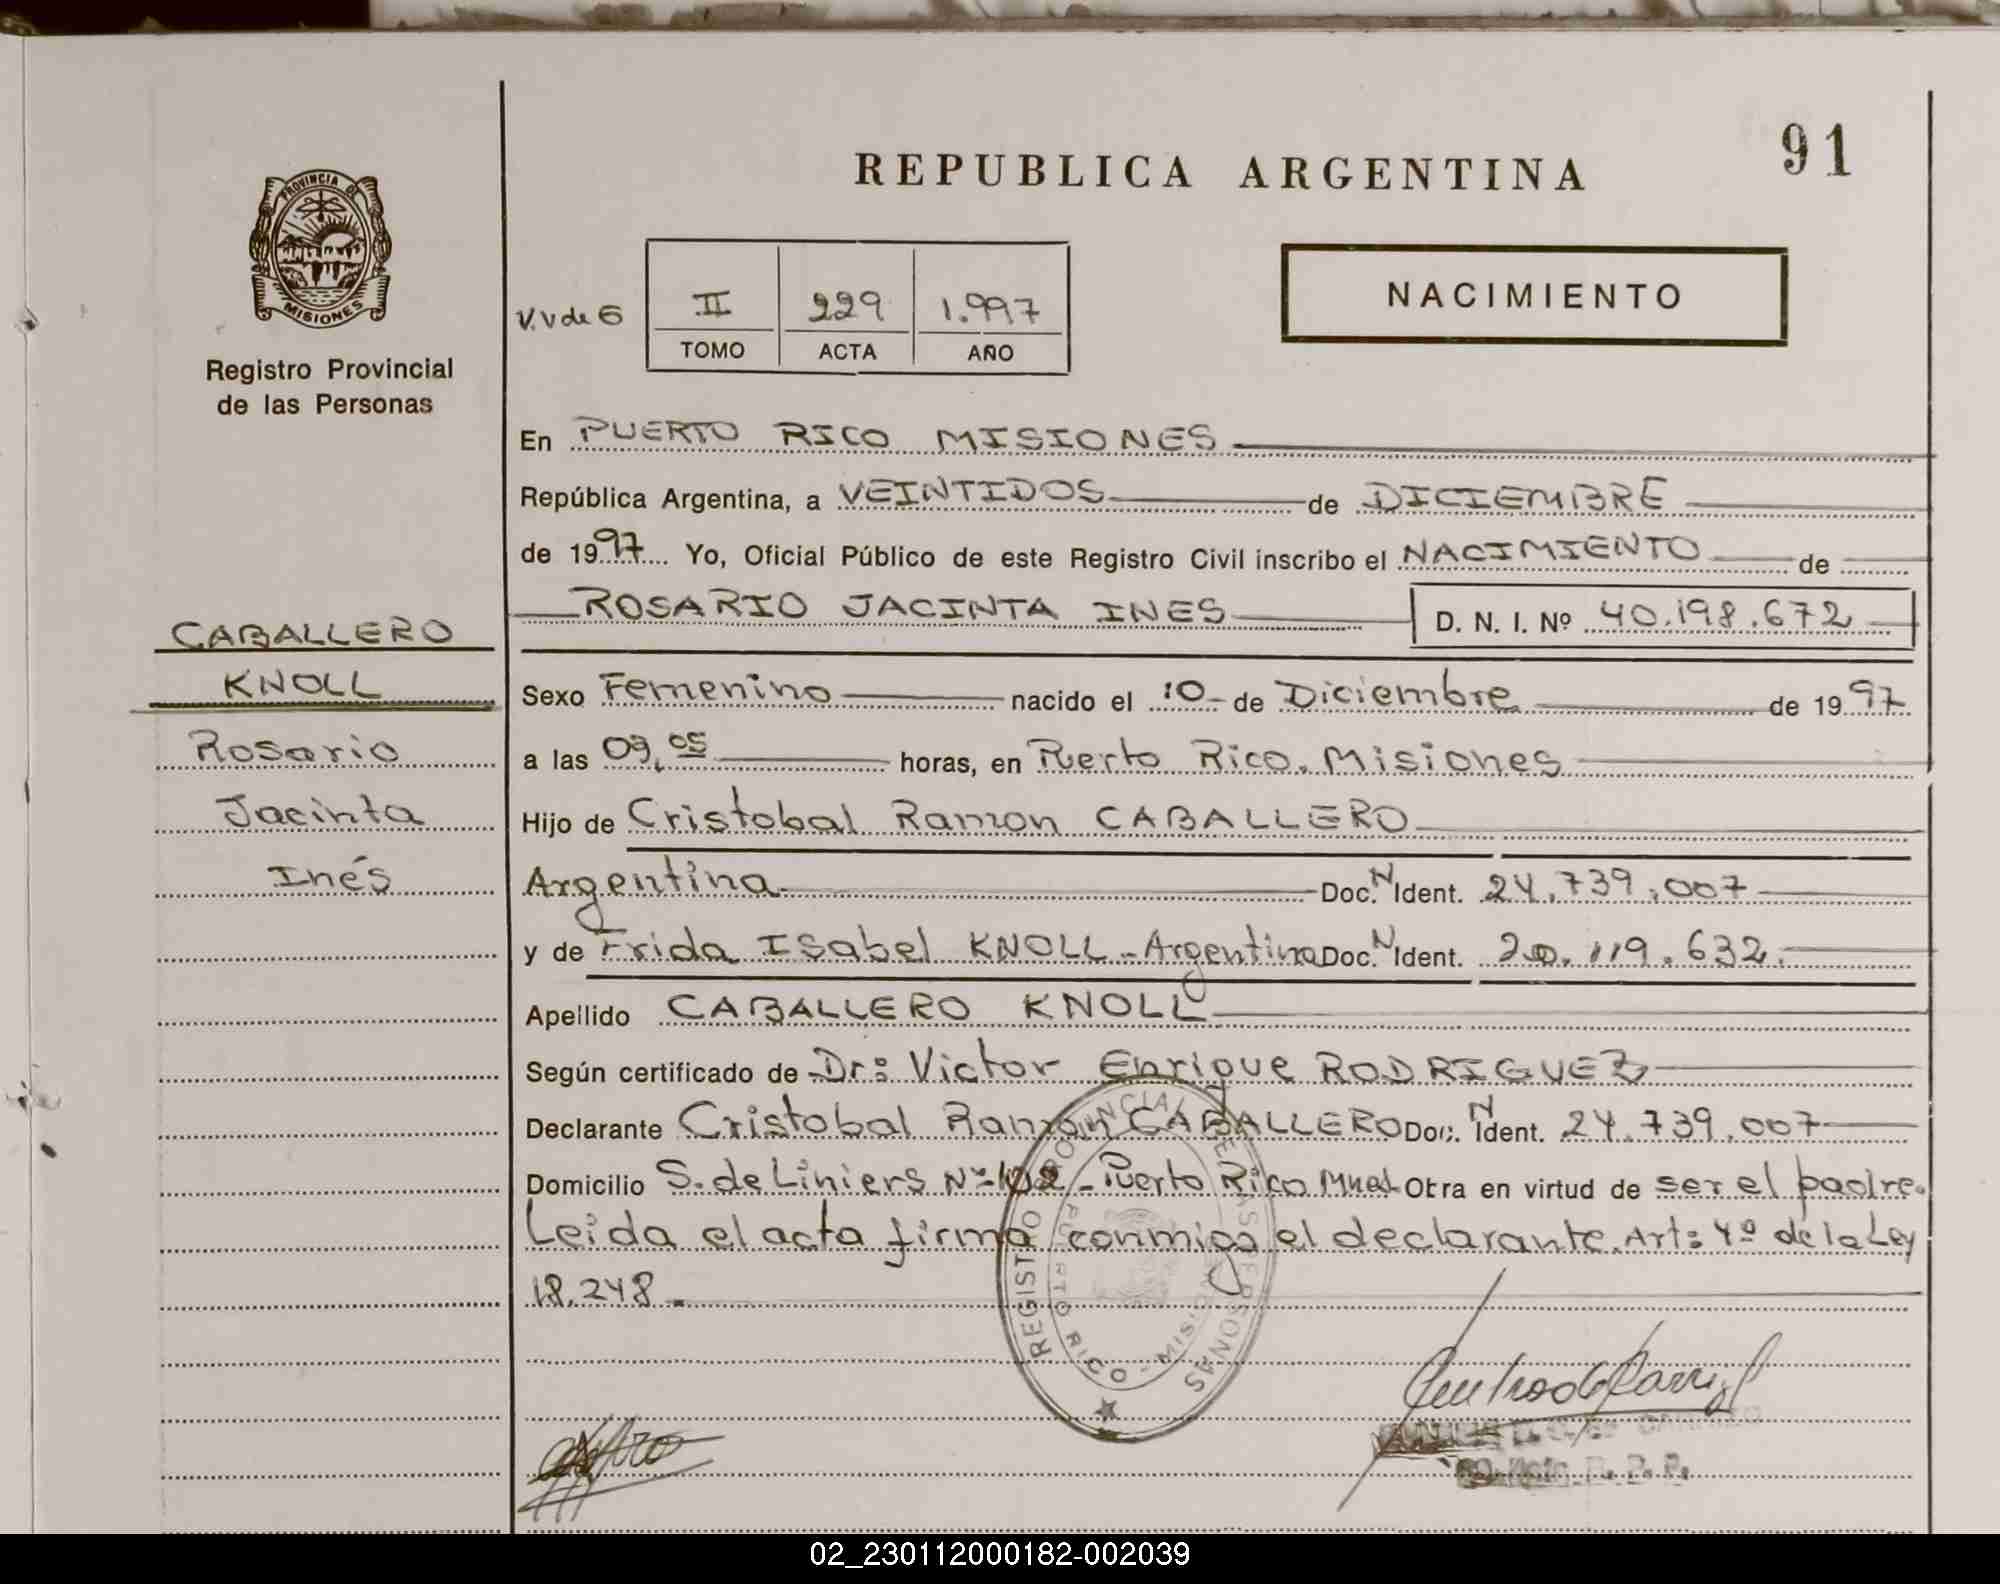 REPUBLICA ARGENTINA
91
PROVINCIA DE
MISIONES
Registro Provincial
de las Personas
V.V de 6
II 229 1.997
TOMO ACTA AÑO
NACIMIENTO
En PUERTO RICO MISIONES
República Argentina, a VEINTIDOS de DICIEMBRE
de 1997 Yo, Oficial Público de este Registro Civil inscribo el NACIMIENTO de
ROSARIO JACINTA INES D. N. I. Nº 40.198.672
CABALLERO
KNOLL
Rosario
Jacinta
Inés
Sexo Femenino nacido el 10- de Diciembre de 1997
a las 09,05 horas, en Puerto Rico. Misiones
Hijo de Cristobal Ramon CABALLERO
Argentina Doc. N Ident. 24.739.007
y de Frida Isabel KNOLL - Argentina Doc. N Ident. 20.119.632.
Apellido CABALLERO KNOLL
Según certificado de Dr: Victor Enrique RODRIGUEZ
Declarante Cristobal Ramon CABALLERO Doc. N Ident. 24.739.007
Domicilio S. de Liniers Nº 102 - Puerto Rico Mnes Obra en virtud de ser el padre.
Leida el acta firma conmigo el declarante. Art: 4º de la Ley
18.248.
REGISTRO PROVINCIAL DE LAS PERSONAS
PUERTO RICO - MISIONES
02_230112000182-002039